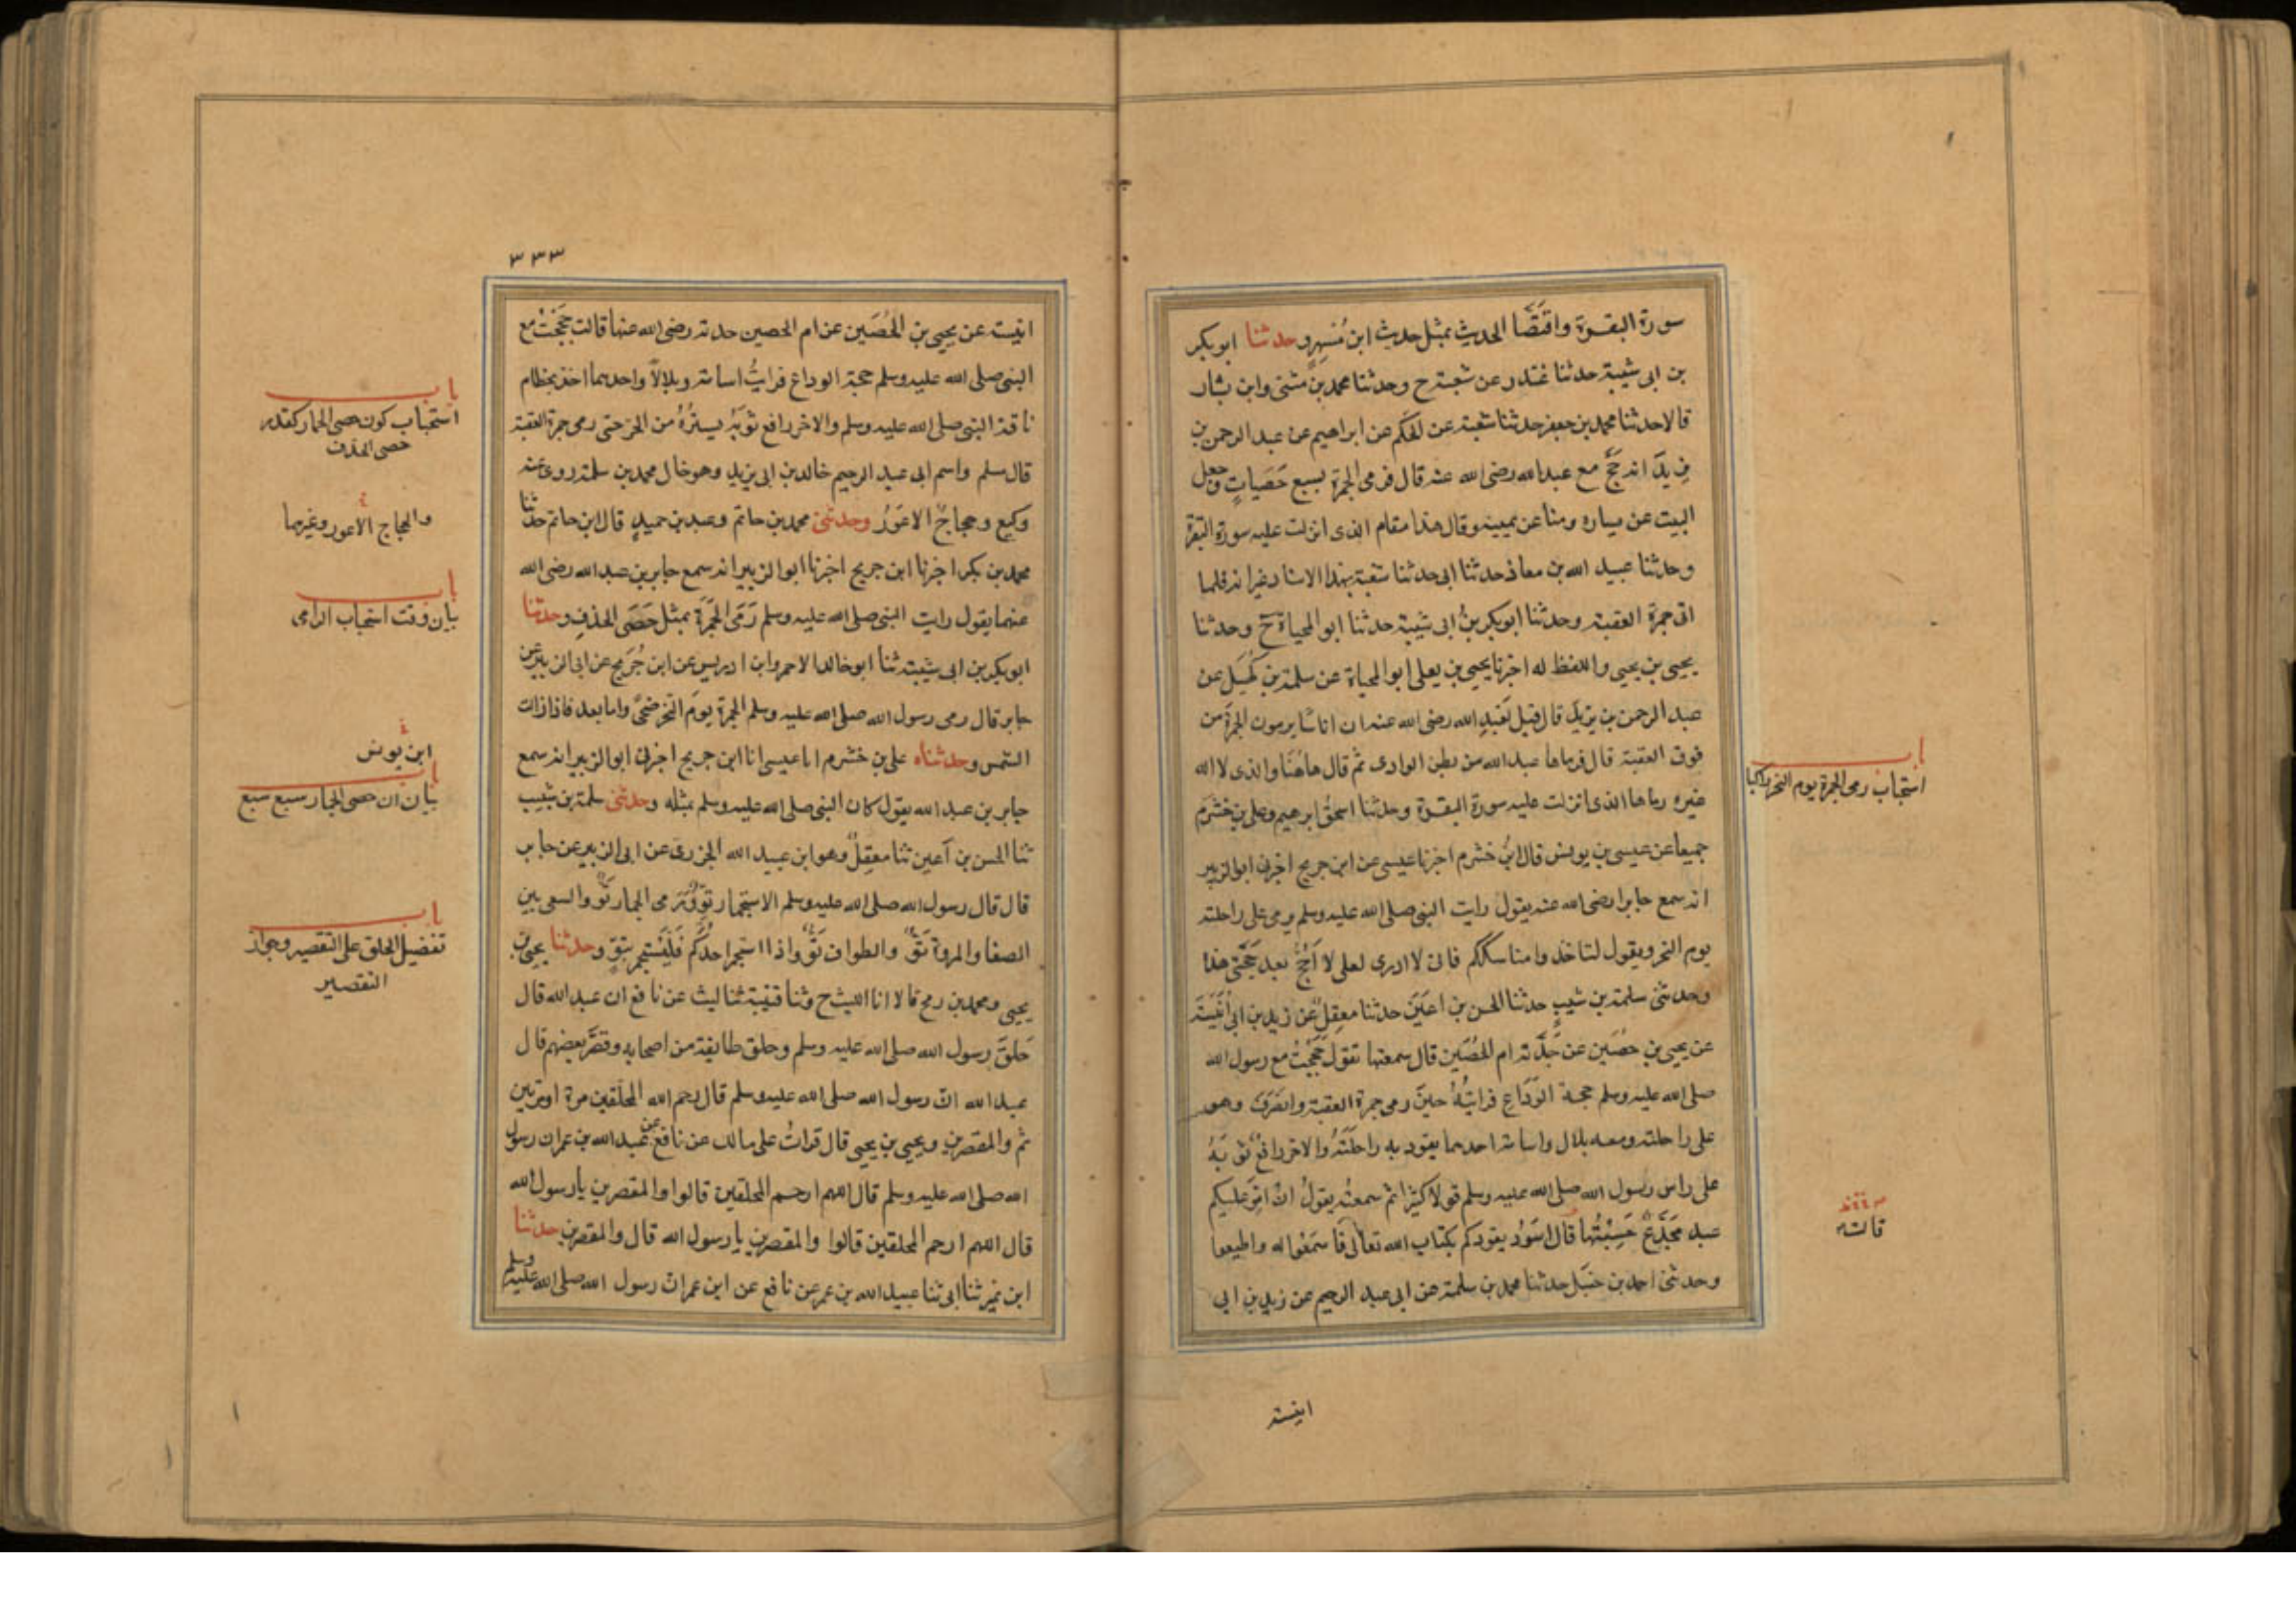 سورة البقرة واقتصا الحديث بمثل حديث ابن مسهر وحدثنا ابو بكر
بن ابى شيبة حدثنا غندر عن شعبة ح وحدثنا محمد بن مثنى وابن بشار
قالا حدثنا محمد بن جعفر حدثنا شعبة عن الحكم عن ابراهيم عن عبد الرحمن بن
يزيد انه حج مع عبد الله رضى الله عنه قال فرمى الجمرة بسبع حصيات وجعل
البيت عن يساره ومنا عن يمينه وقال هذا مقام الذى انزلت عليه سورة البقرة
وحدثنا عبيد الله بن معاذ حدثنا ابى حدثنا شعبة بهذا الاسناد غير انه فلما
اتى جمرة العقبة وحدثنا ابو بكر بن ابى شيبة حدثنا ابو المحياة ح وحدثنا
يحيى بن يحيى واللفظ له اخبرنا يحيى بن يعلى ابو المحياة عن سلمة بن كهيل عن
عبد الرحمن بن يزيد قال قيل لعبد الله رضى الله عنه ان اناسا يرمون الجمرة من
فوق العقبة قال فرماها عبد الله من بطن الوادى ثم قال هاهنا والذى لا اله
غيره رماها الذى انزلت عليه سورة البقرة وحدثنا اسحق ابن ابرهيم وعلى بن خشرم
جميعا عن عيسى بن يونس قال ابن خشرم اخبرنا عيسى عن ابن جريج اخبرنى ابو الزبير
انه سمع جابرا رضى الله عنه يقول رايت النبى صلى الله عليه وسلم يرمى على راحلته
يوم النحر ويقول لتاخذوا مناسككم فانى لا ادرى لعلى لا احج بعد حجتى هذا
وحدثنى سلمة بن شبيب حدثنا الحسن بن اعين حدثنا معقل عن زيد بن ابى انيسة
عن يحيى بن حصين عن جدته ام الحصين قال سمعتها تقول حججت مع رسول الله
صلى الله عليه وسلم حجة الوداع فرايته حين رمى جمرة العقبة وانصرف وهو
على راحلته ومعه بلال واسامة احدهما يقود به راحلته والاخر رافع ثوبه
على راس رسول الله صلى الله عليه وسلم قولا كثيرا ثم سمعته يقول ان امر عليكم
عبد مجدع حسبتها قال اسود يقودكم بكتاب الله تعالى فاسمعوا له واطيعوا
وحدثنى احمد بن حنبل حدثنا محمد بن سلمة عن ابى عبد الرحيم عن زيد بن ابى
انيسة
باب
استحباب رمى الجمرة يوم النحر راكبا
قالت
٣٣٣
انيسة عن يحيى بن الحصين عن ام الحصين جدته رضى الله عنها قالت حججت مع
النبى صلى الله عليه وسلم حجة الوداع فرايت اسامة وبلالا واحدهما اخذ بخطام
ناقة النبى صلى الله عليه وسلم والاخر رافع ثوبه يستره من الحر حتى رمى جمرة العقبة
قال مسلم واسم ابى عبد الرحيم خالد بن ابى يزيد وهو خال محمد بن سلمة روى عنه
وكيع وحجاج الاعور وحدثنى محمد بن حاتم وعبد بن حميد قال ابن حاتم حدثنا
محمد بن بكر اخبرنا ابن جريج اخبرنا ابو الزبير انه سمع جابر بن عبد الله رضى الله
عنهما يقول رايت النبى صلى الله عليه وسلم رمى الجمرة بمثل حصى الخذف وحدثنا
ابو بكر بن ابى شيبة ثنا ابو خالد الاحمر وابن ادريس عن ابن جريج عن ابى الزبير عن
جابر قال رمى رسول الله صلى الله عليه وسلم الجمرة يوم النحر ضحى واما بعد فاذا زالت
الشمس وحدثناه على بن خشرم انا عيسى انا ابن جريج اخبرنى ابو الزبير انه سمع
جابر بن عبد الله يقول كان النبى صلى الله عليه وسلم بمثله وحدثنى سلمة بن شبيب
ثنا الحسن بن اعين ثنا معقل وهو ابن عبيد الله الجزرى عن ابى الزبير عن جابر
قال قال رسول الله صلى الله عليه وسلم الاستجمار تو ورمى الجمار تو والسعى بين
الصفا والمروة تو والطواف تو واذا استجمر احدكم فليستجمر بتو وحدثنا يحيى بن
يحيى ومحمد بن رمح قالا انا الليث ح وثنا قتيبة ثنا ليث عن نافع ان عبد الله قال
حلق رسول الله صلى الله عليه وسلم وحلق طايفة من اصحابه وقصر بعضهم قال
عبد الله ان رسول الله صلى الله عليه وسلم قال رحم الله المحلقين مرة او مرتين
ثم والمقصرين ويحيى بن يحيى قال قرات على مالك عن نافع عن عبد الله بن عمر ان رسول
الله صلى الله عليه وسلم قال اللهم ارحم المحلقين قالوا والمقصرين يا رسول الله
قال اللهم ارحم المحلقين قالوا والمقصرين يا رسول الله قال والمقصرين حدثنا
ابن نمير ثنا ابى ثنا عبيد الله بن عمر عن نافع عن ابن عمر ان رسول الله صلى الله عليه وسلم
باب
استحباب كون حصى الجمار كقدر
حصى الخذف
والحجاج الاعور وغيرهما
باب
بيان وقت استحباب الرامى
ابن يونس
باب
بيان ان حصى الجمار سبع سبع
باب
تفضيل الحلق على التقصير وجواز
التقصير